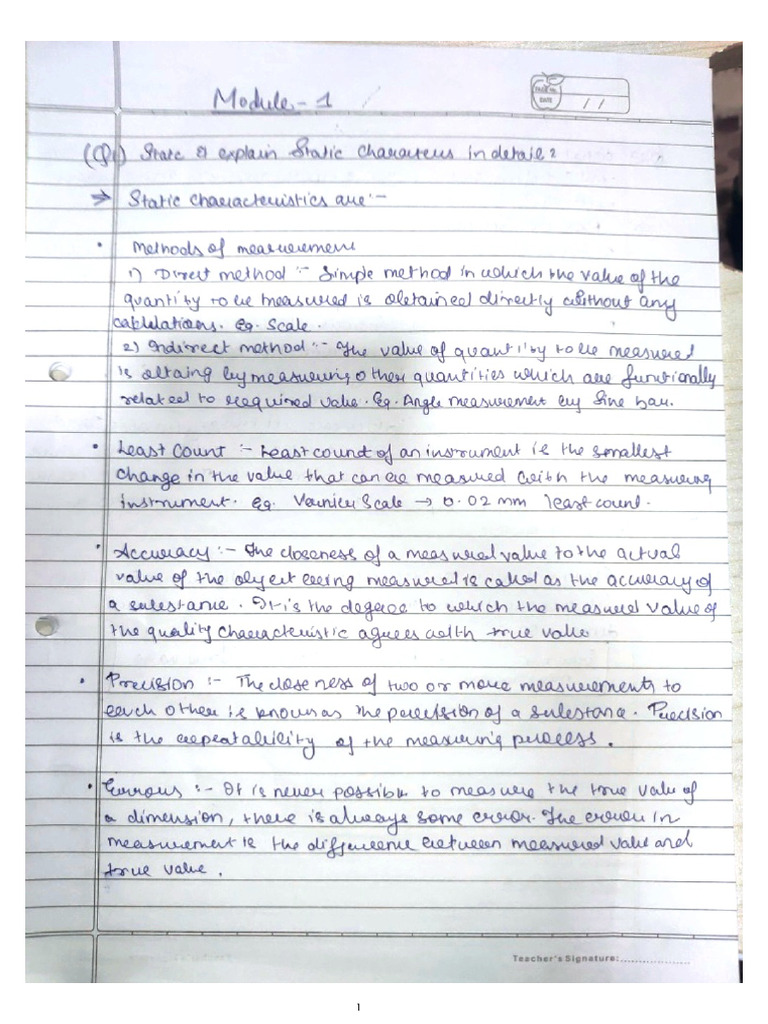 Module - 1
PAGE No.
DATE
/ /
(Q1) State & explain Static Characters in detail?
→ Static characteristics are :-
• Methods of measurement
1) Direct method :- Simple method in which the value of the
quantity to be measured is obtained directly without any
calculations. Eg. Scale.
2) Indirect method :- The value of quantity to be measured
is obtaing by measuring other quantities which are functionally
related to required value. Eg. Angle measurement by Sine bar.
• Least Count :- Least count of an instrument is the smallest
change in the value that can be measured with the measuring
instrument. Eg. Vernier Scale → 0.02 mm least count.
• Accuracy :- The closeness of a measured value to the actual
value of the object being measured is called as the accuracy of
a substance. It is the degree to which the measured value of
the quality characteristic agrees with true value
• Precision :- The closeness of two or more measurements to
each other is known as the precision of a substance. Precision
is the repeatability of the measuring process.
• Errors :- It is never possible to measure the true value of
a dimension, there is always some error. The error in
measurement is the difference between measured value and
true value.
Teacher's Signature:....................
1